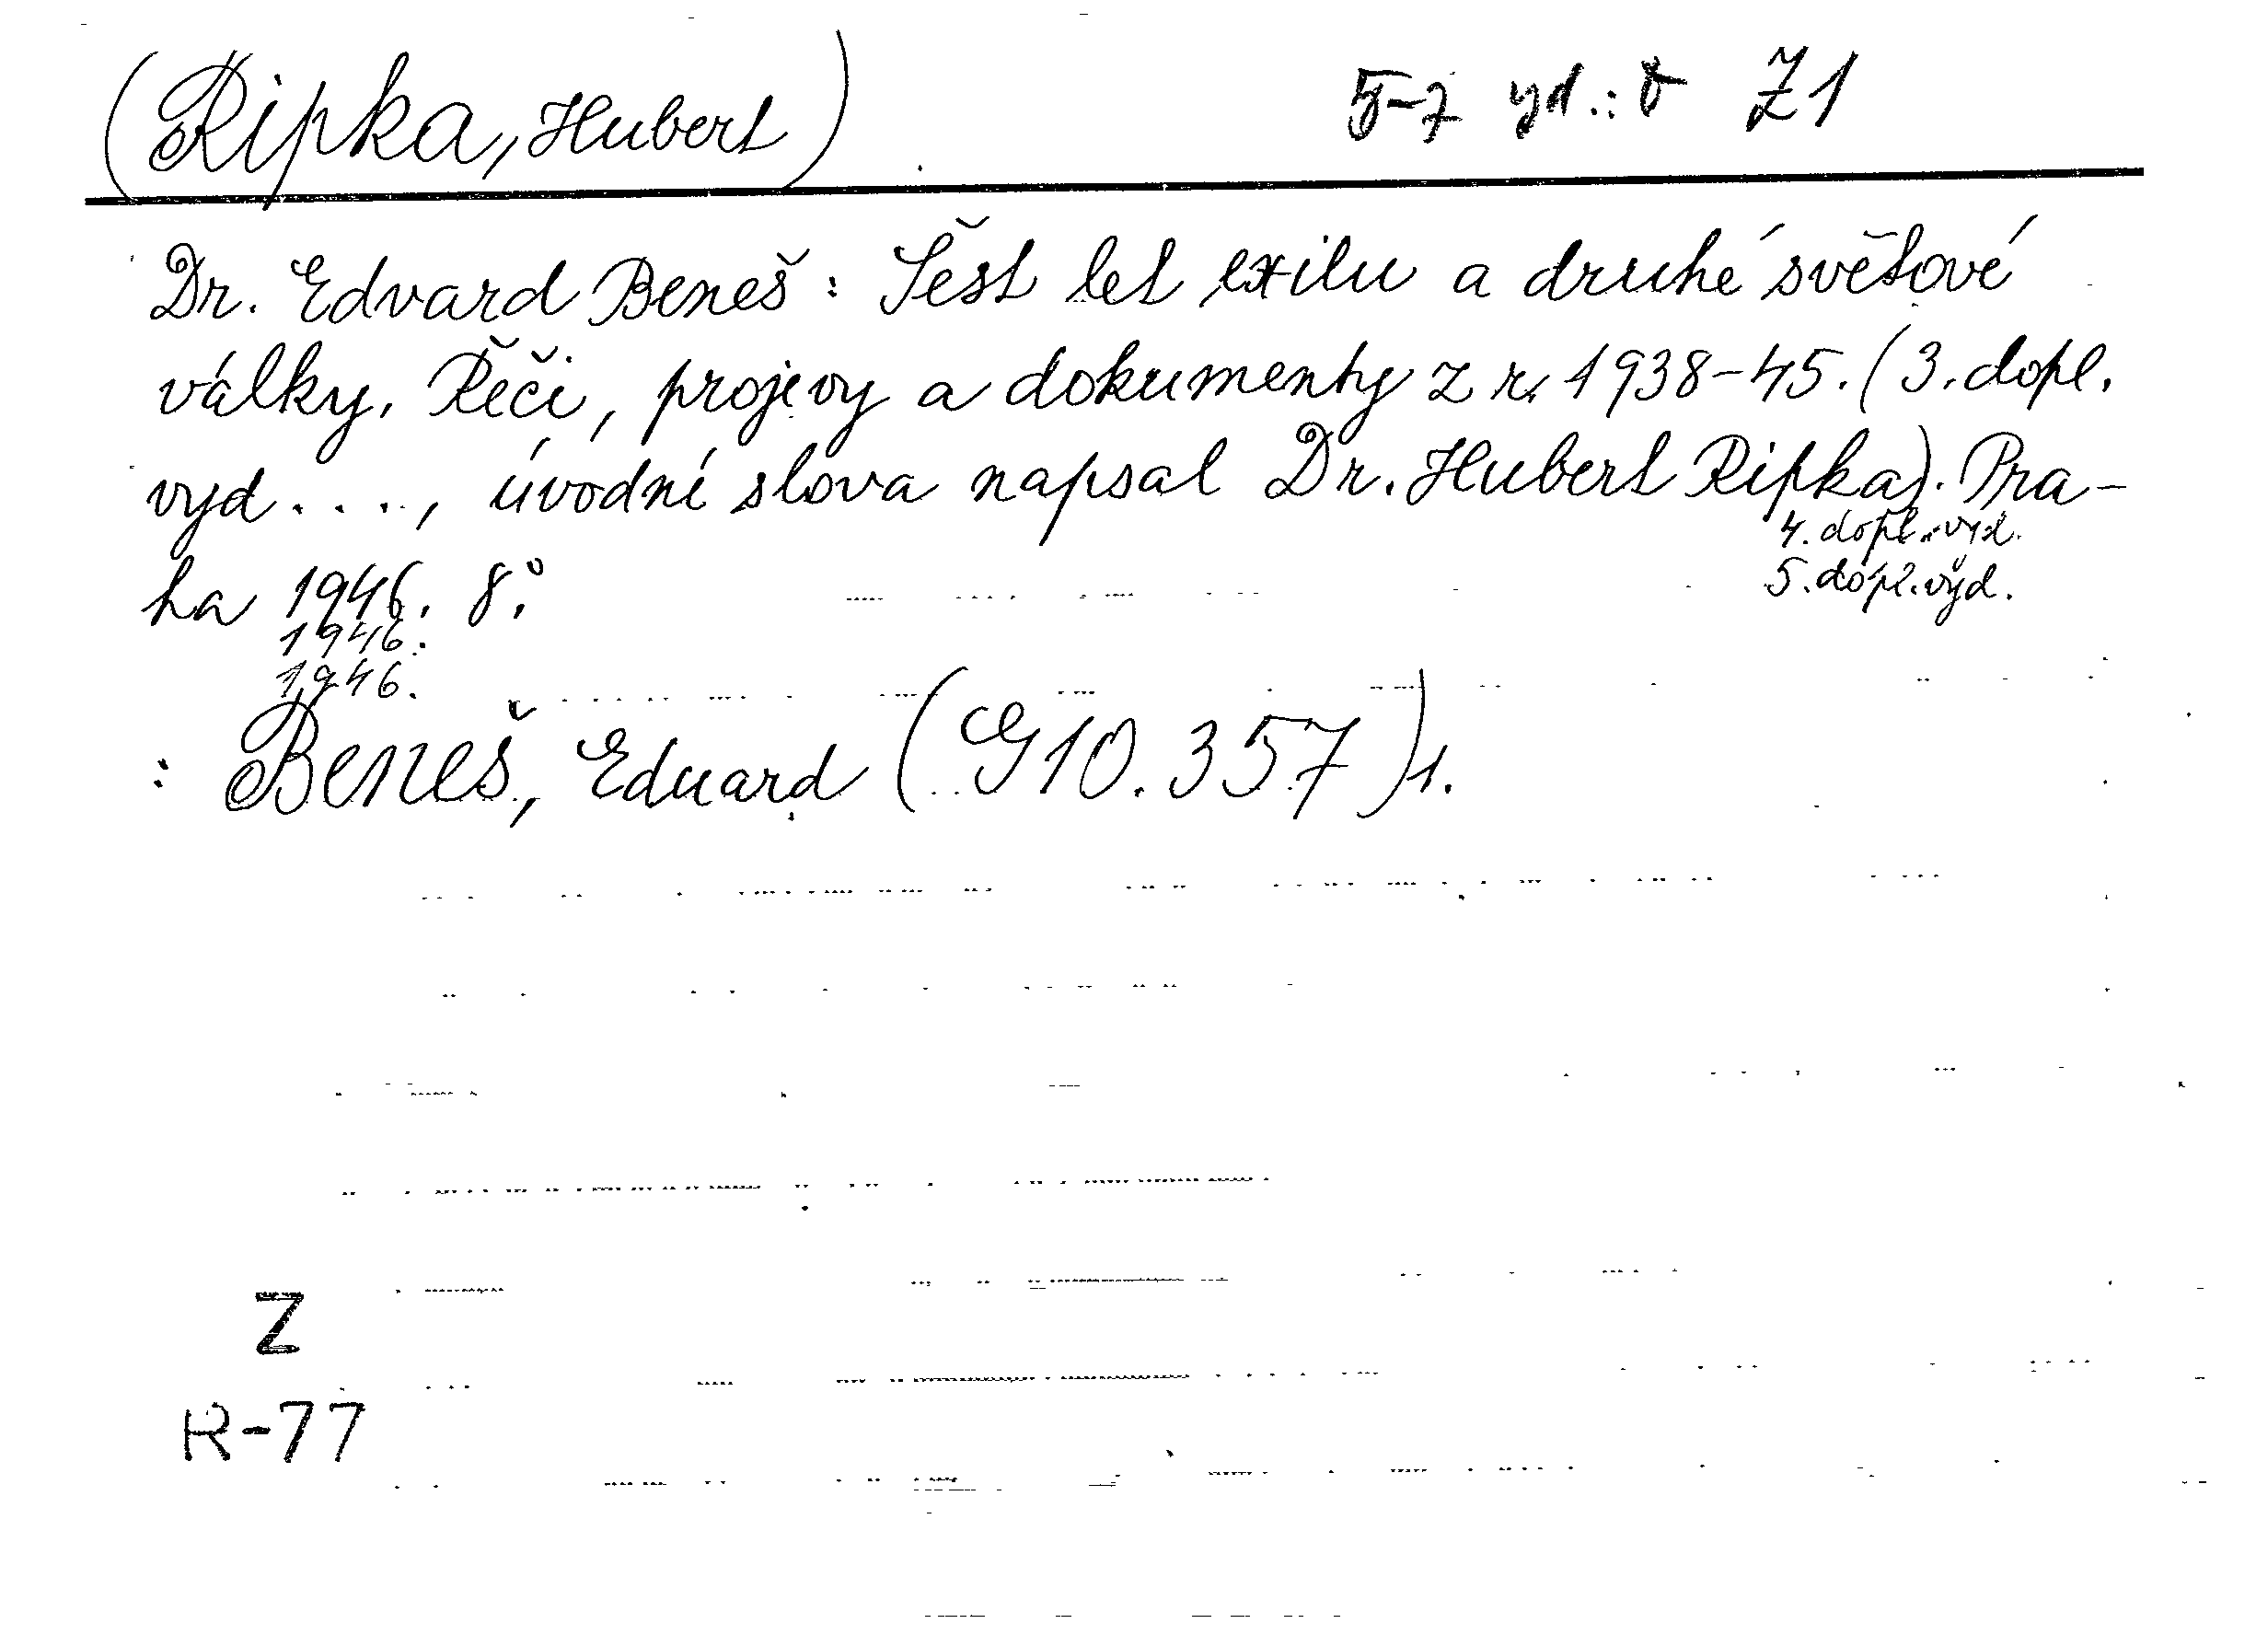 (Ripka, Hubert)
5-7 yd.: v Z1
Dr. Edvard Beneš: Šest let exilu a druhé světové
války. Řeči, projevy a dokumenty z r. 1938-45. (3. dopl.
vyd . . . , úvodní slova napsal Dr. Hubert Ripka). Pra-
4. dopl. vyd.
ha 1946. 8°.
5. dopl. vyd.
1946.
1946.
: Beneš, Eduard (G10.357) 1.
Z
R-77